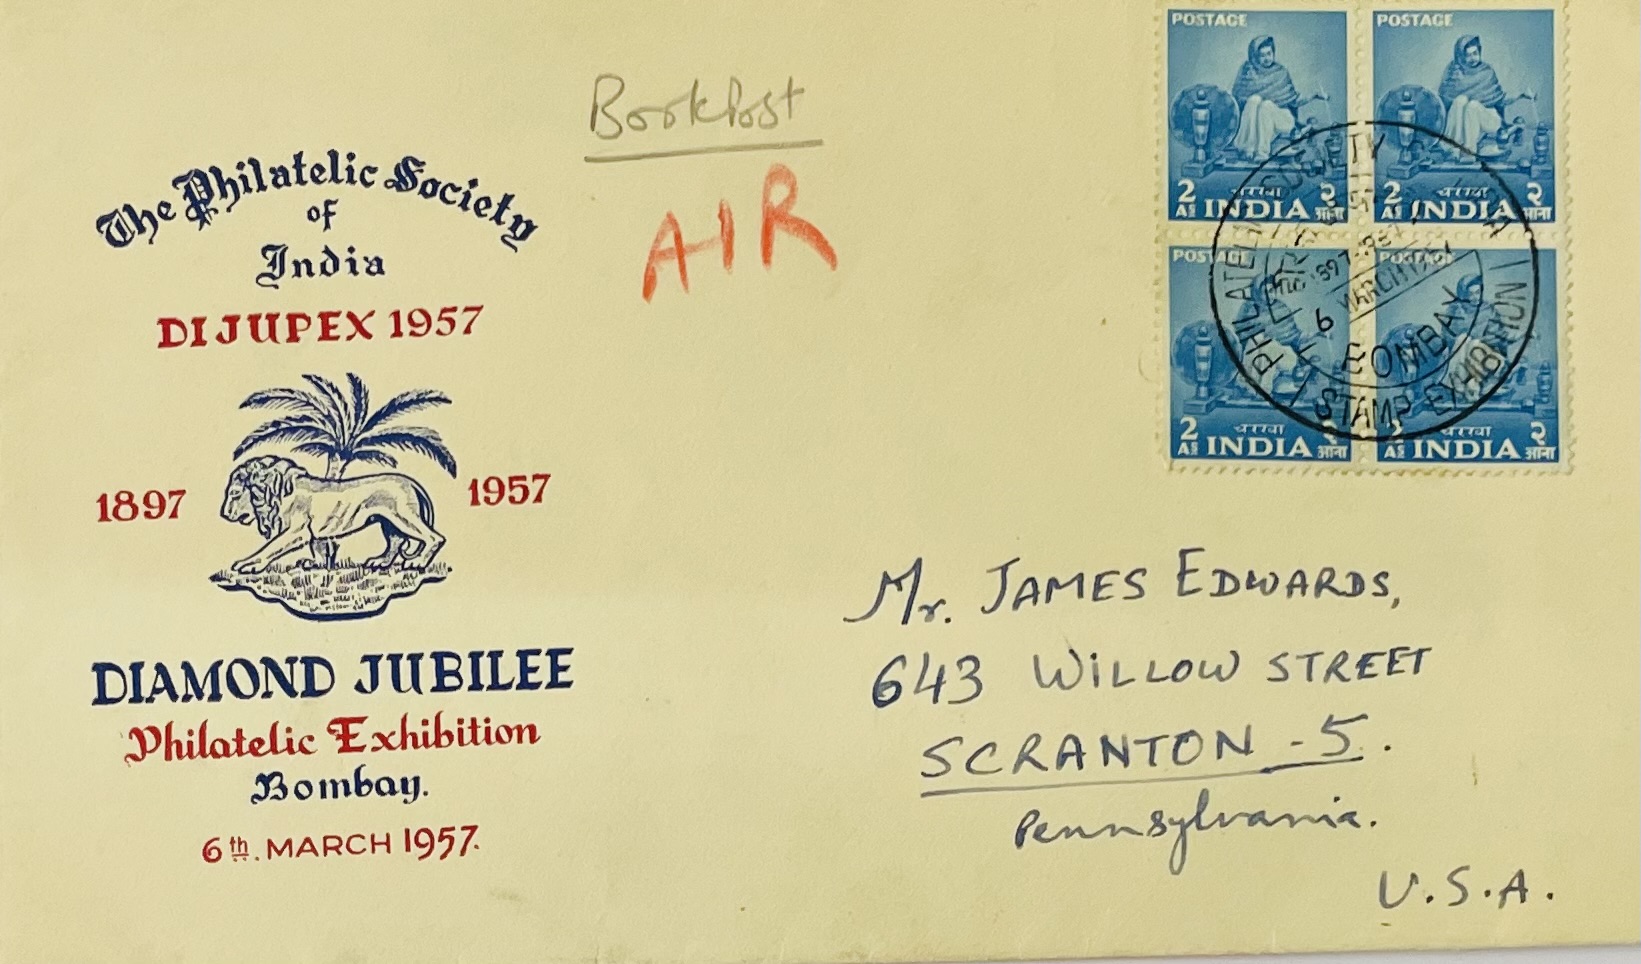 The Philatelic Society
of
India
DIJUPEX 1957
1897 1957
DIAMOND JUBILEE
Philatelic Exhibition
Bombay.
6th. MARCH 1957.
BookPost
AIR
POSTAGE
2 AS चरखा २ आना
INDIA
POSTAGE
2 AS चरखा २ आना
INDIA
POSTAGE
2 AS चरखा २ आना
INDIA
POSTAGE
2 AS चरखा २ आना
INDIA
PHILATELIC SOCIETY
1897-1957
6 MARCH 1957
BOMBAY
STAMP EXHIBITION
Mr. JAMES EDWARDS,
643 WILLOW STREET
SCRANTON - 5.
Pennsylvania.
U.S.A.